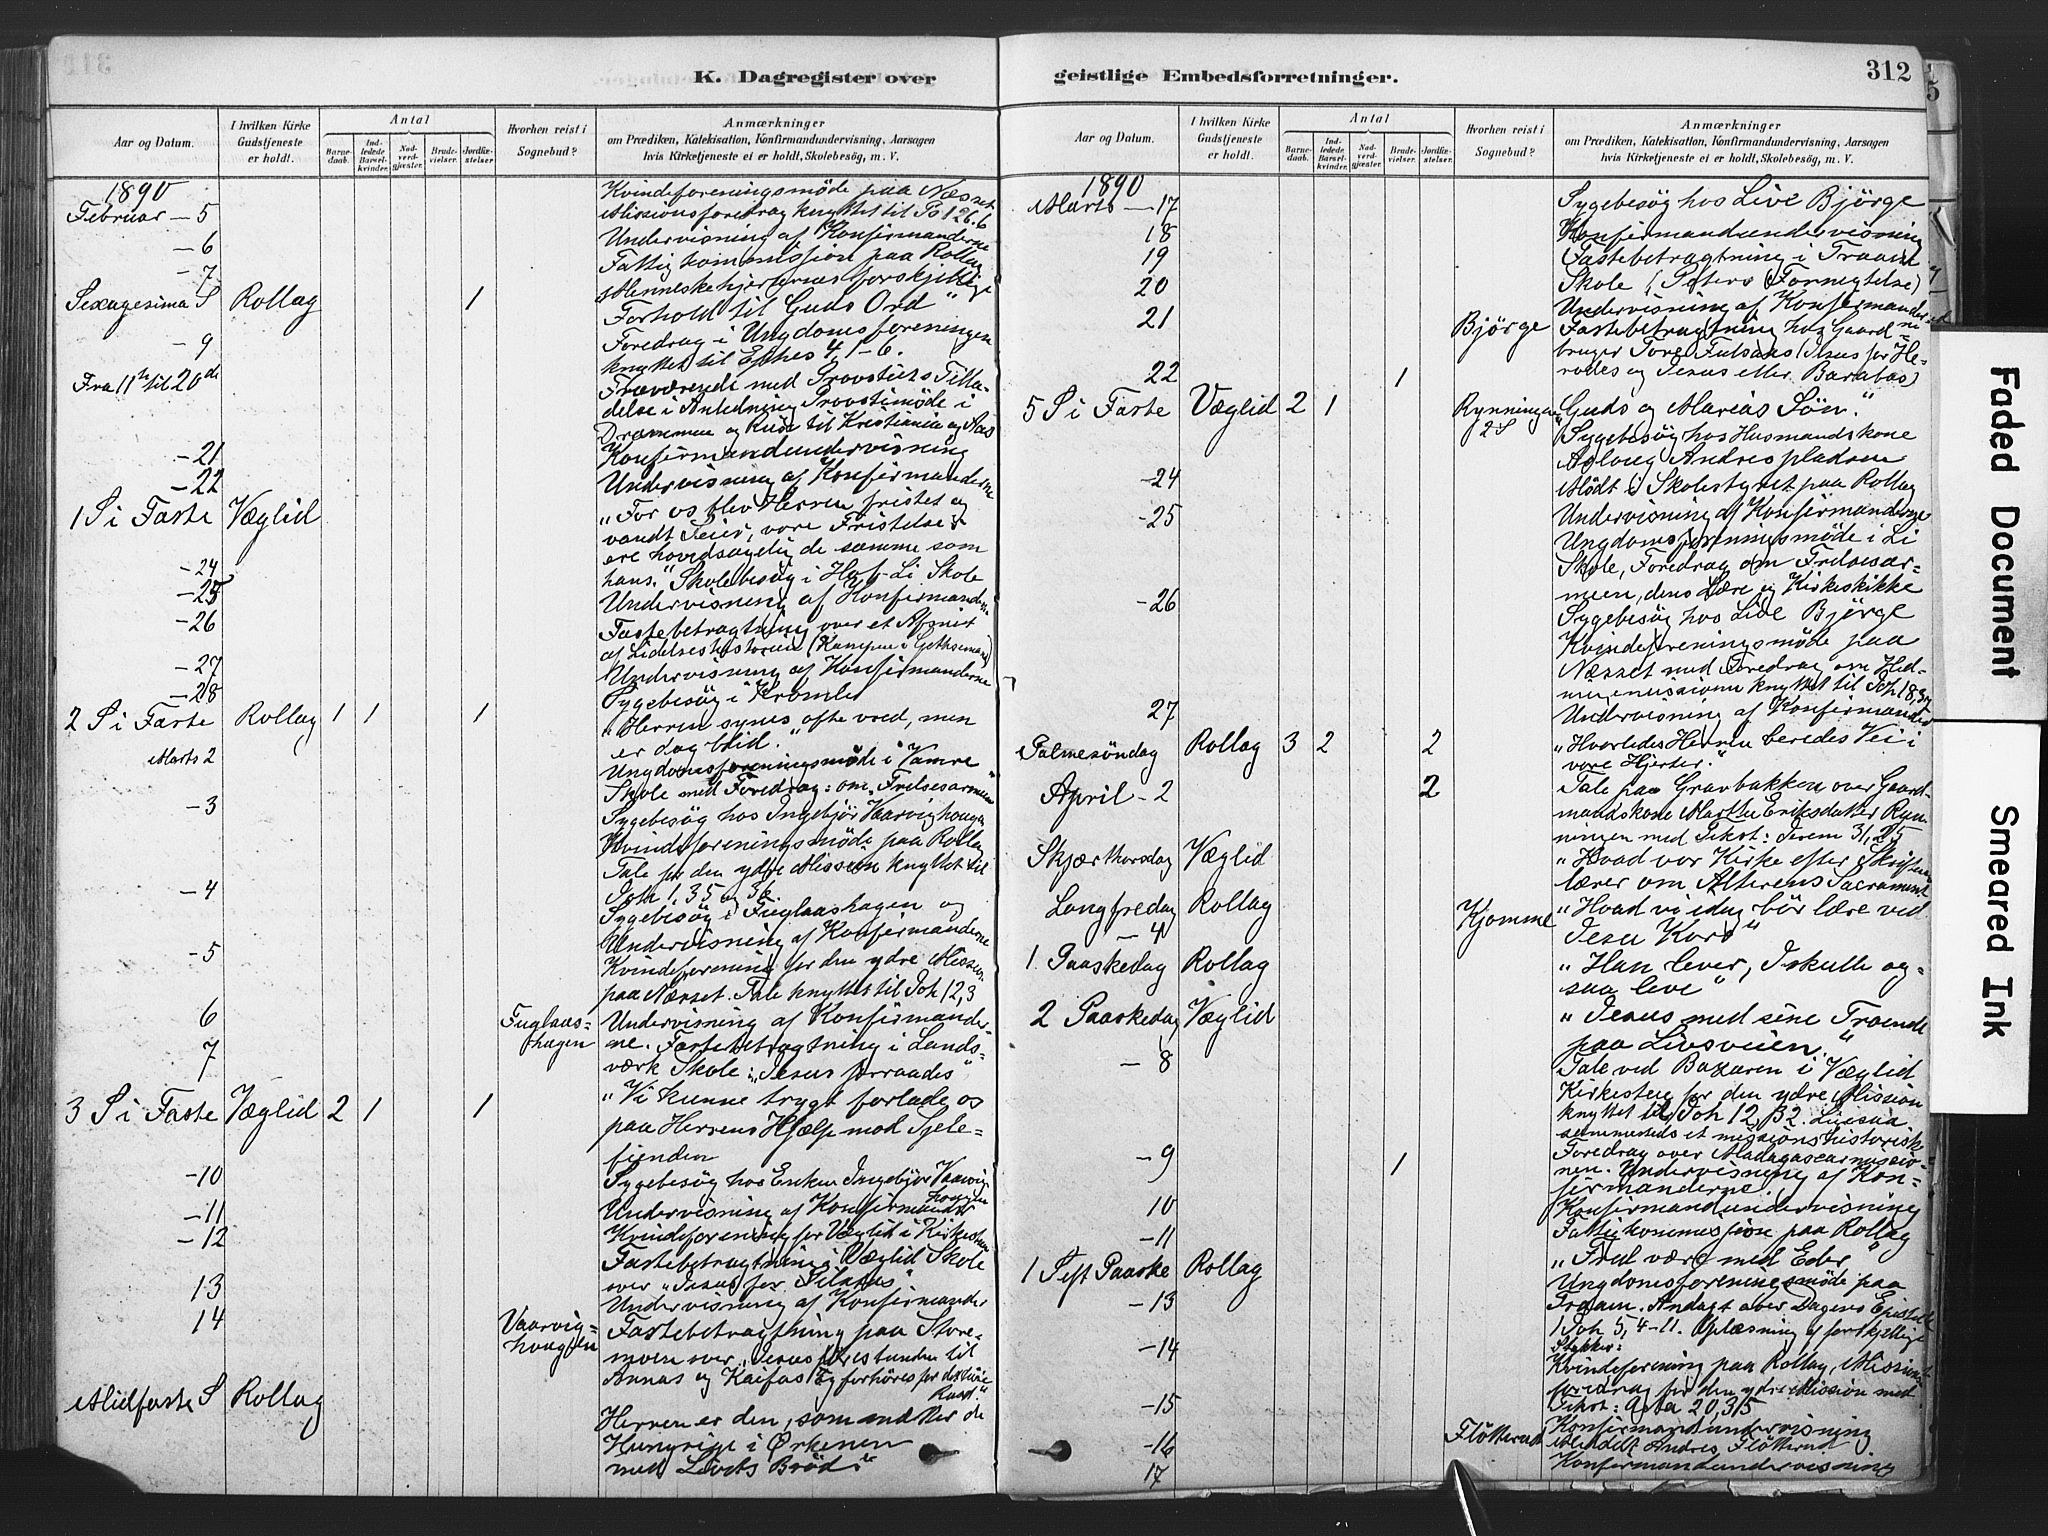 K. Dagregister over
Aar og Datum.
I hvilken Kirke Gudstjeneste er holdt.
Antal
Barnedaab.
Indledede Barselkvinder.
Nadverdgjæster.
Brudevielser.
Jordfæstelser
Hvorhen reist i Sognebud?
Anmærkninger
om Prædiken, Katekisation, Konfirmandundervisning, Aarsagen
hvis Kirketjeneste ei er holdt, Skolebesøg, m. V.
1890
Februar - 5
Kvindeforeningsmøde paa Næsset
Missionsforedrag knyttet til Ps 126.6
- 6
Undervisning af Konfirmanderne
- 7
Fattigkommission paa Rollag
Sexagesima S Rollag 1
Menneskehjerternes forskjellige
Forhold til Guds Ord"
- 9
Foredrag i Ungdomsforeningen
knyttet til Ephes 4, 1-6.
Fra 11te til 20de
Fraværende med Provstiets Tilla-
delse i Anledning Provstimøde i
Drammen og Reise til Kristiania og Aas
- 21
Konfirmandundervisning
- 22
Undervisning af Konfirmanderne
1 S i Faste Væglid
"For os blev Herren fristet og
vandt Seier, vore Fristelser
ere hovedsagelig de samme som
- 24
hans." Skolebesøg i Hof-Li Skole
- 25
Undervisning af Konfirmanderne
- 26
Fastebetragtning over et Afsnit
af Lidelseshistorien (Kampen i Gethsemane)
- 27
Undervisning af Konfirmanderne
- 28
Sygebesøg i Kromli
2 S i Faste Rollag 1 1 1
"Herren synes ofte vred, men
er dog blid."
Marts 2
Ungdomsforeningsmøde i Vamre
Skole med Foredrag: om "Frelsesarmeen"
- 3
Sygebesøg hos Ingebjør Vaarvighougen
Kvindeforeningsmøde paa Rollag
Tale for den ydre Mission knyttet til
Joh 1, 35 og 36
- 4
Sygebesøg i Fuglaashagen og
Undervisning af Konfirmanderne
- 5
Kvindeforening for den ydre Mission
paa Næsset. Tale knyttet til Joh 12,3
6 Fuglaas-
hagen
Undervisning af Konfirmander-
7
ne. Fastebetragtning i Lands-
værk Skole: "Jesus forraades"
3 S i Faste Væglid 2 1 1
"Vi kunne trygt forlade os
paa Herrens Hjælp mod Sjele-
fienden
- 10
Sygebesøg hos Enken Ingebjør Vaarvig-
hougen
- 11
Undervisning af Konfirmander
- 12
Kvindeforening for Væglid i Kirkestuen
Fastebetragtning i Væglid Skole
over "Jesus for Pilatus".
13
Undervisning af Konfirmander
14 Vaarvig-
hougen
Fastebetragtning paa Store-
moen over "Jesus føres bunden til
Annas og Kaifas og forhøres for det høie
Raad."
Midfaste S Rollag
Herren er den, som mætter de
Hungrige i Ørkenen
med Livets Brød."
geistlige Embedsforretninger.
312
Aar og Datum.
I hvilken Kirke Gudstjeneste er holdt.
Antal
Barnedaab.
Indledede Barselkvinder.
Nadverdgjæster.
Brudevielser.
Jordfæstelser.
Hvorhen reist i Sognebud?
Anmærkninger
om Prædiken, Katekisation, Konfirmandundervisning, Aarsagen
hvis Kirketjeneste ei er holdt, Skolebesøg, m. V.
1890
Marts - 17
Sygebesøg hos Live Bjørge
18
Konfirmandundervisning
19
Fastebetragtning i Traaen
20
Skole (Peters Fornegtelse)
Undervisning af Konfirmander
21 Bjørge
Fastebetragtning hos Gaard-
bruger Tore Fulsaas (Jesus for He-
22 1
rodes og Jesus eller Barabas)
5 S i Faste Væglid 2 1 Rynningen
2 S
"Guds og Marias Søn."
Sygebesøg hos Husmandskone
Aslaug Andrespladsen
- 24
Mødt i Skolestyret paa Rollag
- 25
Undervisning af Konfirmanderne
Ungdomsforeningsmøde i Li
Skole, Foredrag om Frelsesar-
meen, dens Lære og Kirkeskikke
- 26
Sygebesøg hos Live Bjørge
Kvindeforeningsmøde paa
Næsset med Foredrag om Hed-
ningemissionen knyttet til Joh 18,
27
Undervisning af Konfirmander
Palmesöndag Rollag 3 2 2
"Hvorledes Herren beredes Vei i
vore Hjerter."
April - 2 2
Tale paa Gravbakken over Gaard-
mandskone Marthe Eriksdatter Ryn-
ningen med Tekst: Jerem 31, 25
Skjærthorsdag Væglid
"Hvad vor Kirke efter Skriften
lærer om Alterens Sacrament
Langfredag Rollag
"Hvad vi idag bør lære ved
Jesu Kors"
- 4 Kjomme
1 Paaskedag Rollag
"Han lever, I skulle og-
saa leve"
2 Paaskedag Væglid
"Jesus med sine Troende
paa Livsveien."
- 8
Tale ved Bazaren i Væglid
Kirkesteg for den ydre Mission
knyttet til Joh 12, 32. Ligesaa
sammesteds et missionshistorisk
Foredrag over Madagascarmissio-
- 9 1
nen. Undervisning af Kon-
firmanderne.
10
Konfirmandundervisning
- 11
Fattigkommission paa Rollag
1 S eft Paaske Rollag
"Fred være med Eder"
- 13
Ungdomsforeningsmøde paa
Traaen. Andagt over Dagens Epistel
1 Joh 5, 4-11. Oplæsning af forskjellige
Stykker.
- 14
Kvindeforening paa Rollag, Missions-
foredrag for den ydre Mission med
- 15
Tekst: Acta 20,35
Konfirmandundervisning
- 16 Flötterud
Meddelt Andres Flötterud
17
Konfirmandundervisning
Faded Document
Smeared Ink